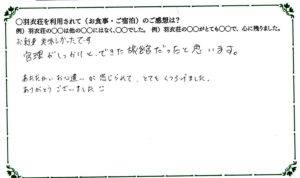 ○羽衣荘を利用されて(お食事・ご宿泊)のご感想は?
例)羽衣荘の○○は他の○○にはなく、○○でした。 例)羽衣荘の○○がとても○○で、心に残りました。
お料理 美味しかったです
管理がしっかりと、できた旅館だったと思います。
あたたかい お心遣い が 感じられて、とても くつろげました。
ありがとう ございました